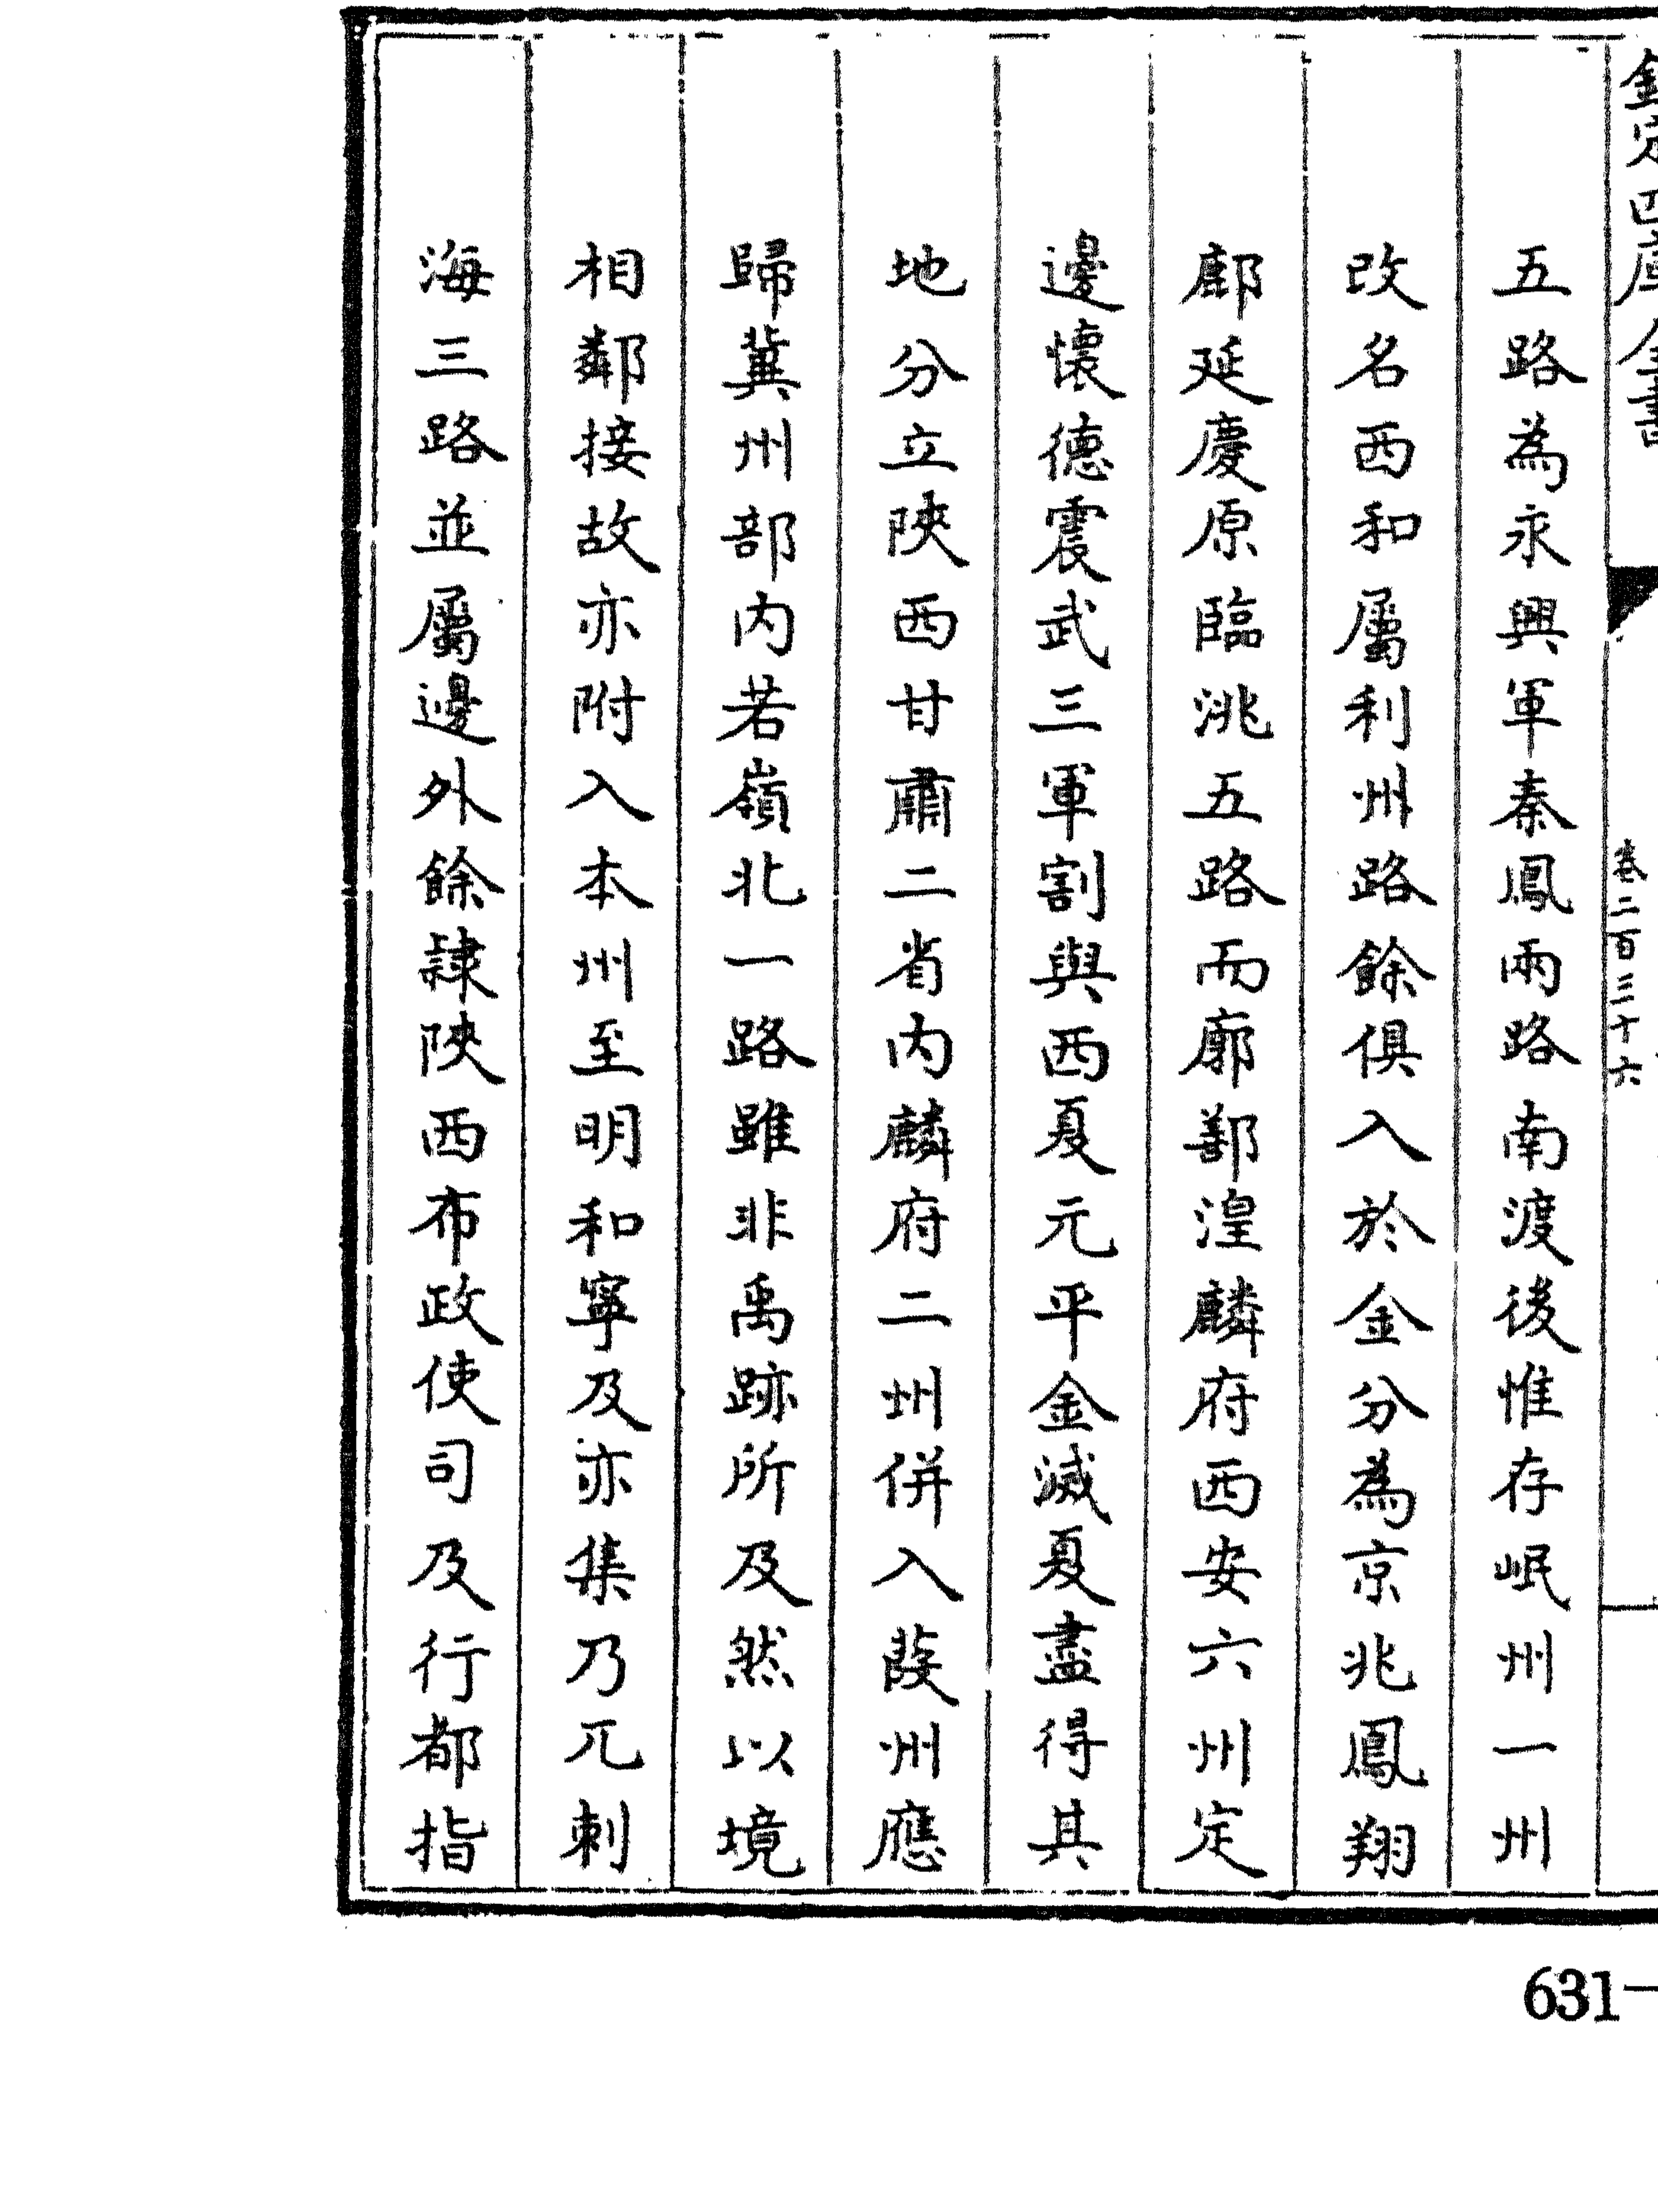 欽定四庫全書
卷二百三十六
五路為永興軍秦鳳兩路南渡後惟存岷州一州
改名西和屬利州路餘俱入於金分為京兆鳳翔
鄜延慶原臨洮五路而廓鄯湟麟府西安六州定
邊懷德震武三軍割與西夏元平金滅夏盡得其
地分立陜西甘肅二省内麟府二州併入葭州應
歸冀州部内若嶺北一路雖非禹跡所及然以境
相鄰接故亦附入本州至明和寧及亦集乃兀刺
海三路並屬邊外餘隷陜西布政使司及行都指
631-